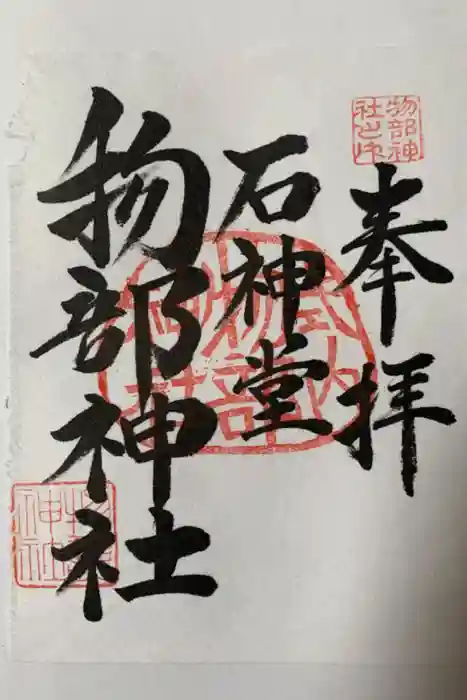 奉拝
石神堂
物部神社
物部神
社之印
式内
物部
神社